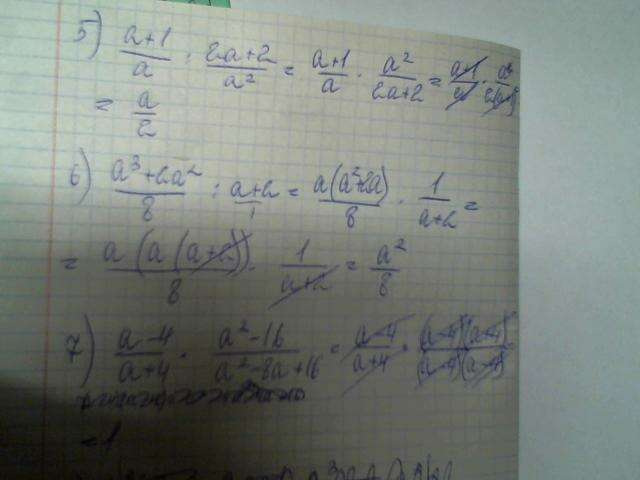 5) (a+1)/a : (2a+2)/a² = (a+1)/a · a²/(2a+2) = (a+1)/a · a²/
= a/2
6) (a³+2a²)/8 : (a+2)/1 = a(a²+2a)/8 · 1/(a+2) =
= a(a(a+2))/8 · 1/(a+2) = a²/8
7) (a-4)/(a+4) · (a²-16)/(a²-8a+16) = (a-4)/(a+4) · (a-4)(a+4)/(a-4)(a-4)
=1